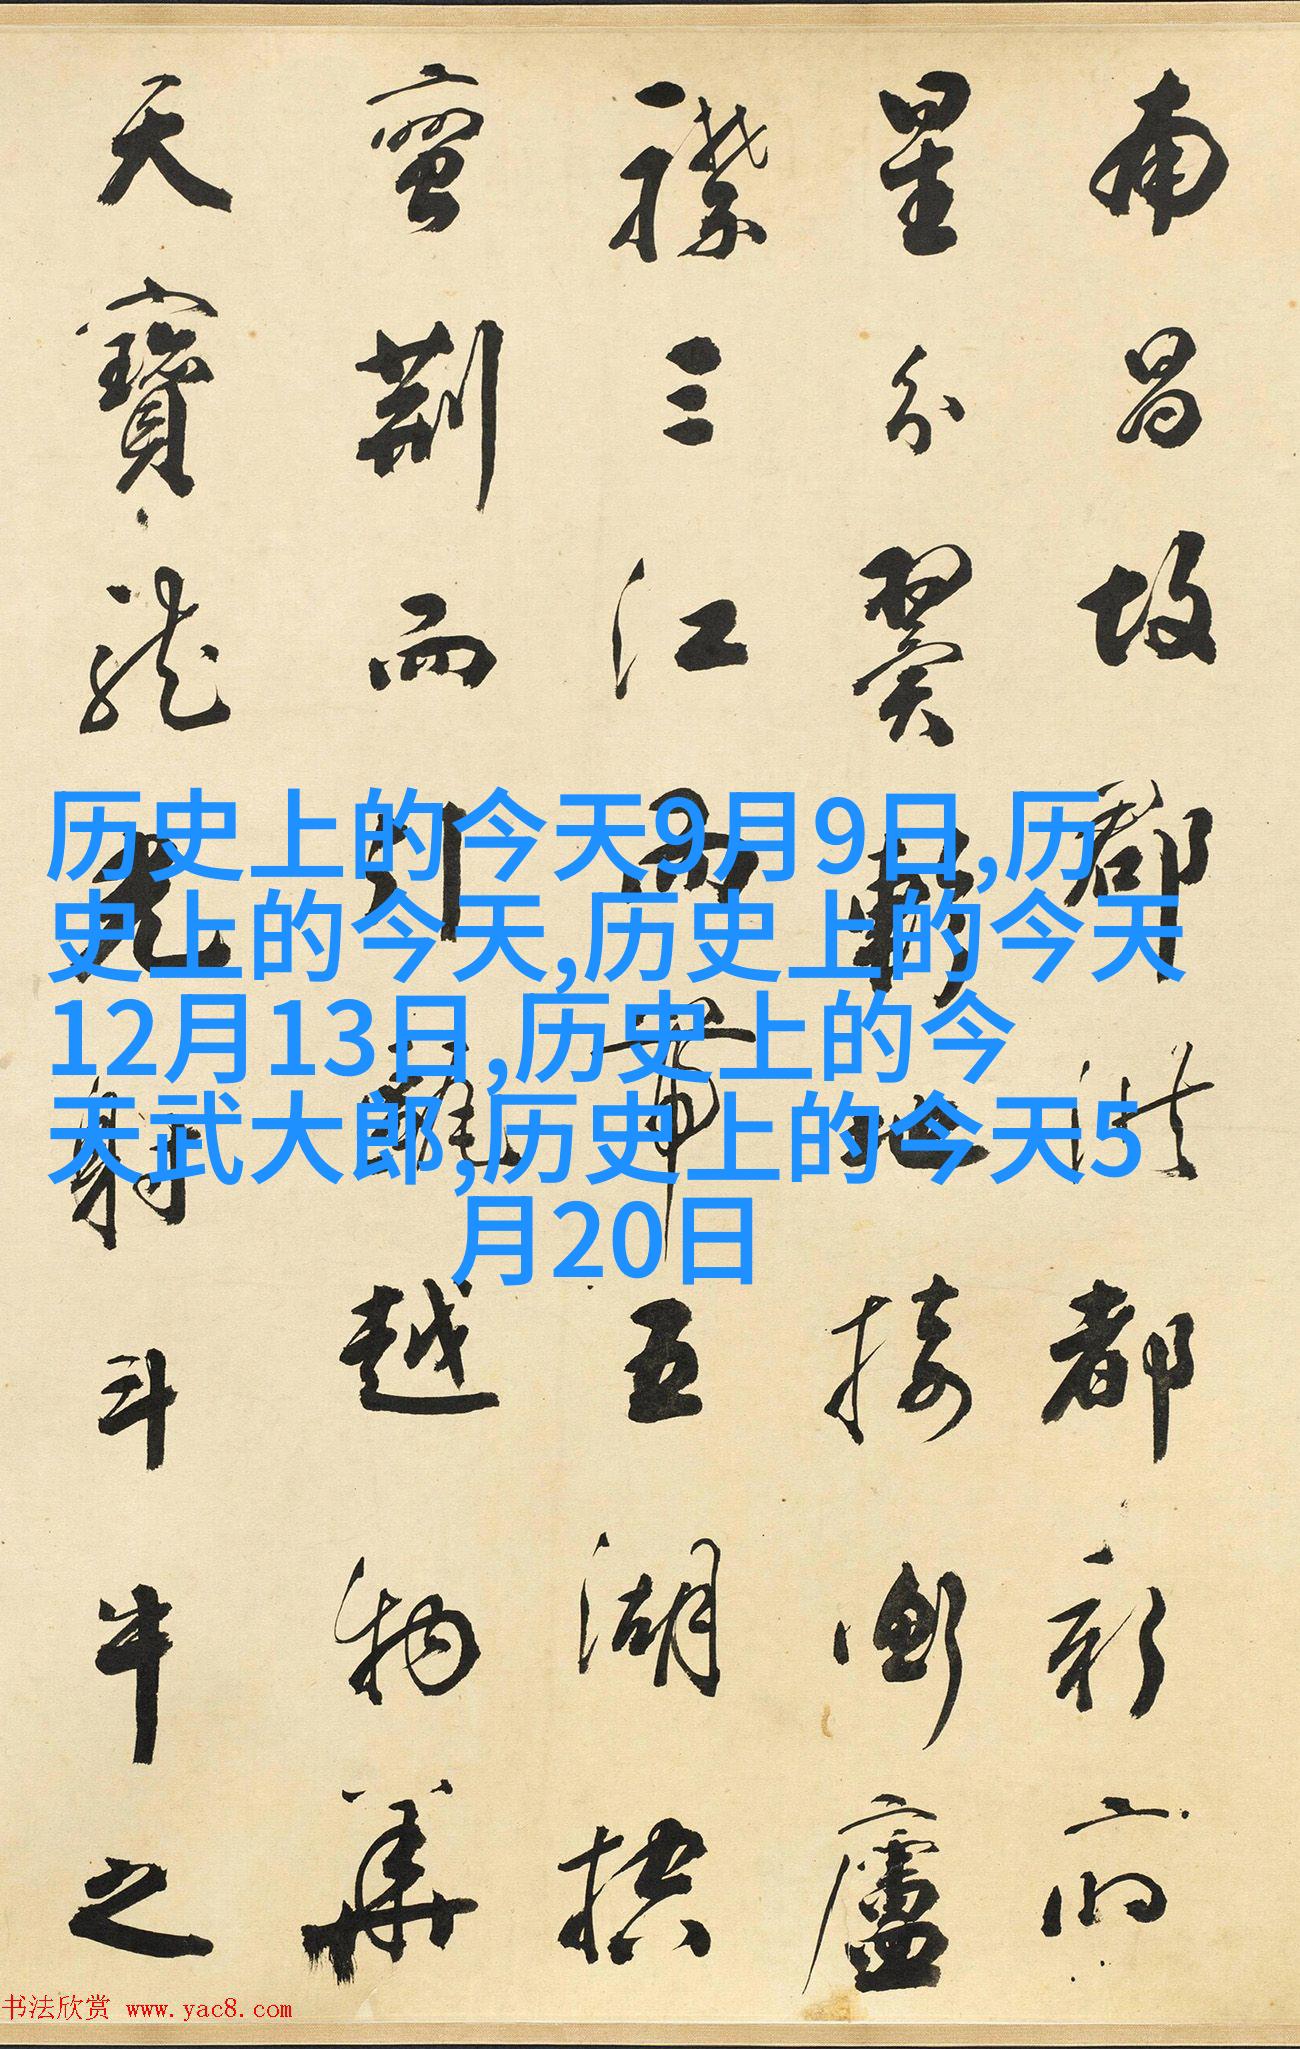 南昌故郡洪都新府
星分翼軫地接衡廬
襟三江而帶五湖控
蠻荊而引甌越物華
天寶龍光射斗牛之
历史上的今天9月9日,历
史上的今天,历史上的今天
12月13日,历史上的今
天武大郎,历史上的今天5
月20日
书法欣赏 www.yac8.com